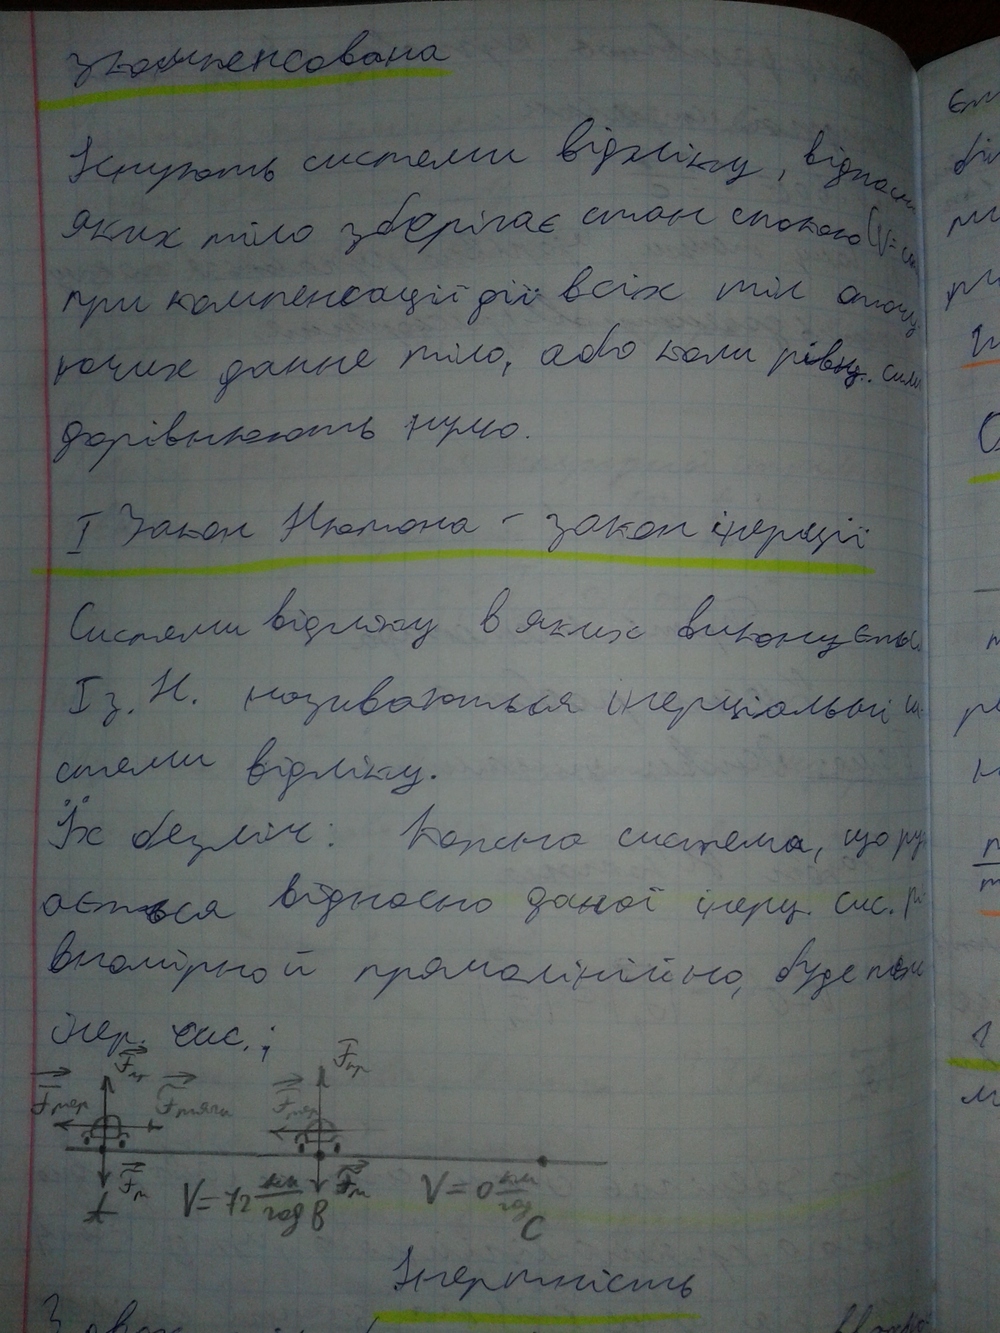 зкомпенсована
Існують системи відліку, відносн
яких тіло зберігає стан спокою (V=
при компенсації дії всіх тіл оточу
ючих данне тіло, або коли рівн. сили
дорівнюють нулю.
I Закон Ньютона - закон інерції
Системи відліку в яких виконуєть
I з. Н. називаються інерціальні си
стеми відліку.
Їх безліч: Кожна система, що ру
ається відносно даної інерц. сис. рі
вномірно й прямолінійно, буде
інер. сис.;
Fпр Fпр
Fтер Fтяги Fтер
Fт Fт
A V=72 км/год B V=0 км/год C
Інертність